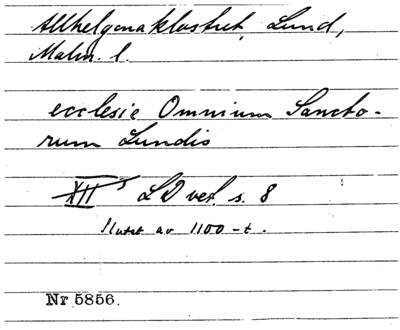 Allhelgonaklostret, Lund,
Malm. l.
ecclesie Omnium Sancto-
rum Lundis
XII LD vet. s. 8
Slutet av 1100-t.
Nr 5856.